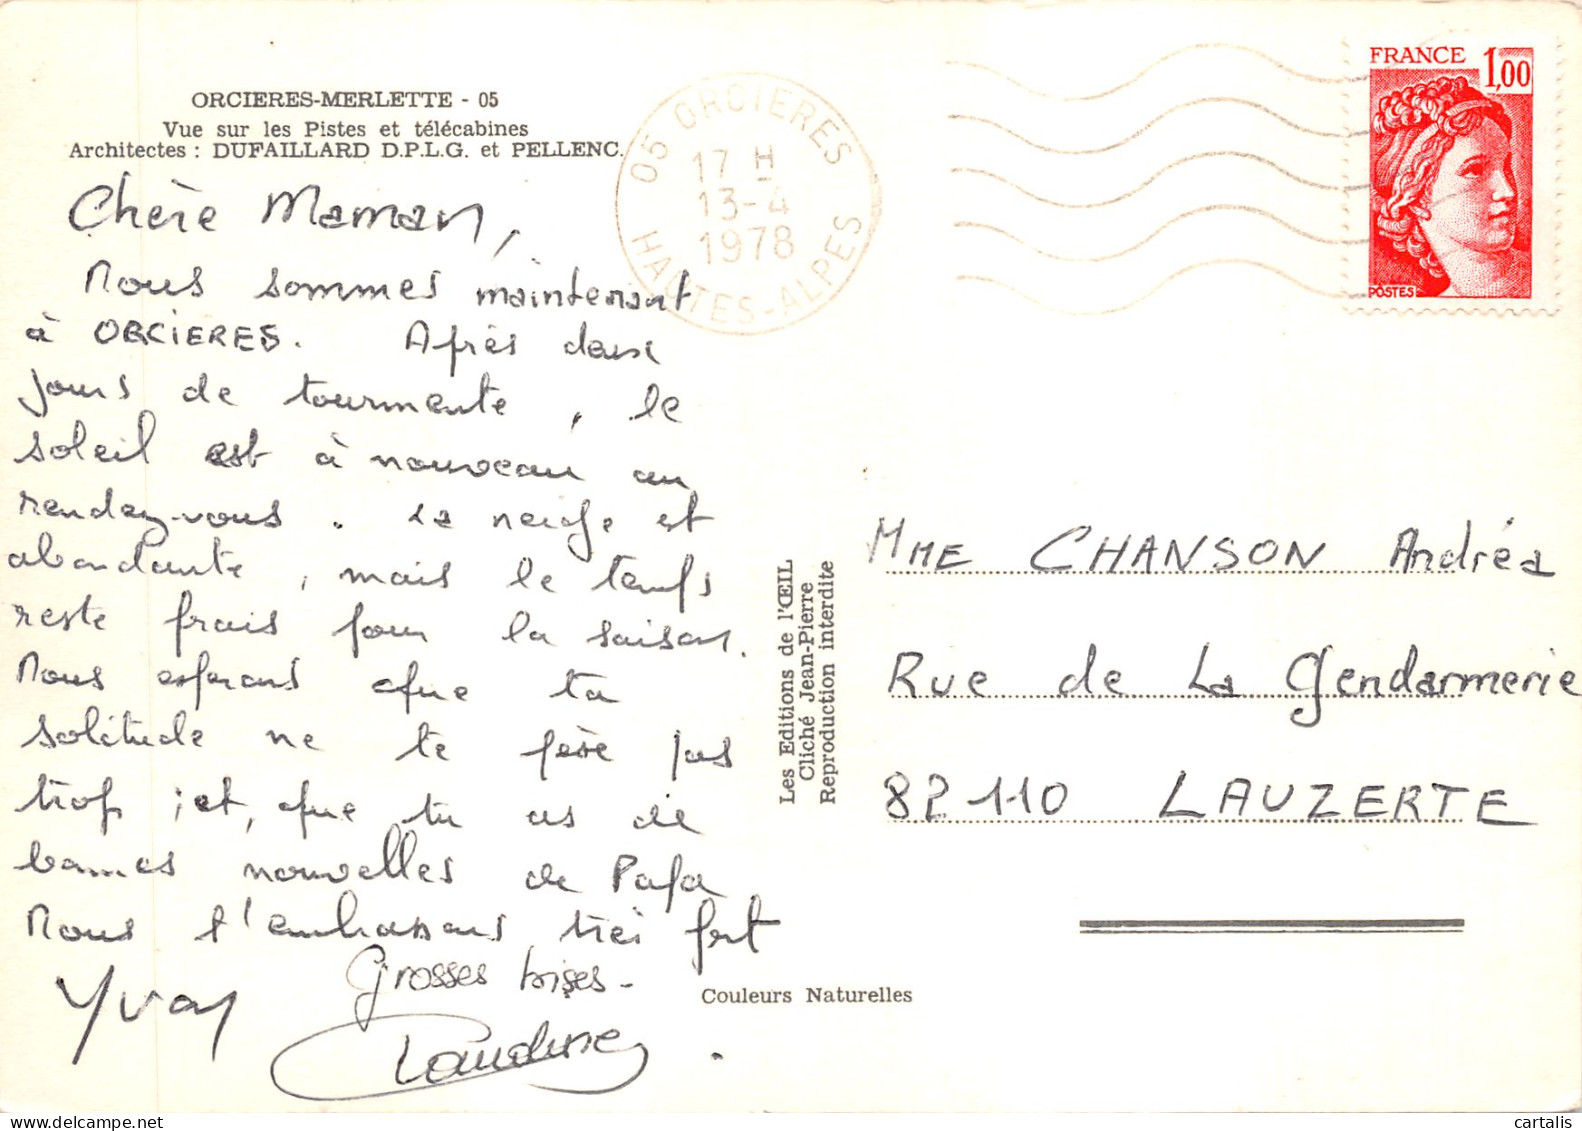 ORCIERES-MERLETTE - 05
Vue sur les Pistes et télécabines
Architectes : DUFAILLARD D.P.L.G. et PELLENC.
Chère Maman,
Nous sommes maintenant
à ORCIERES. Après deux
jours de tourmente, le
soleil est à nouveau au
rendez-vous. La neige est
abondante, mais le temps
reste frais pour la saison.
Nous espérons que ta
solitude ne te pèse pas
trop ; et, que tu as de
bonnes nouvelles de Papa
Nous t'embrassons très fort
Grosses bises -
Yvan
Claudine
05 ORCIERES
17 H
13-4
1978
HAUTES-ALPES
FRANCE 1,00
POSTES
Les Editions de l'ŒIL
Cliché Jean-Pierre
Reproduction interdite
MME CHANSON Andréa
Rue de La Gendarmerie
82110 LAUZERTE
Couleurs Naturelles
cartalis